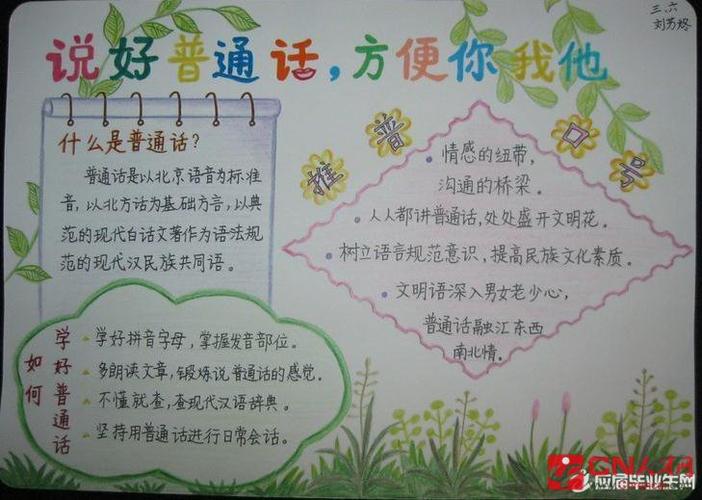 三.六
说好普通话,方便你我他
什么是普通话?
普通话是以北京语音为标准
音,以北方话为基础方言,以典
范的现代白话文著作为语法规
范的现代汉民族共同语。
推普口号
情感的纽带,
沟通的桥梁。
人人都讲普通话,处处盛开文明花。
树立语言规范意识,提高民族文化素质。
文明语深入男女老少心,
普通话融汇东西
南北情。
如何
学好普通话
学好拼音字母,掌握发音部位。
多朗读文章,锻炼说普通话的感觉。
不懂就查,查现代汉语辞典。
坚持用普通话进行日常会话。
应届毕业生网